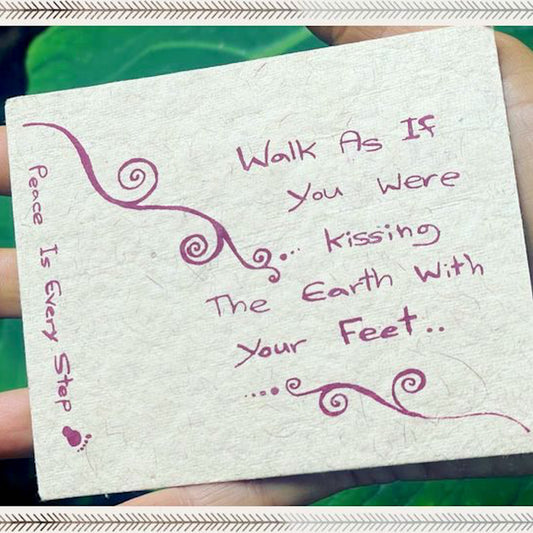 Walk As If
You Were
... Kissing
The Earth With
Your Feet..
Peace Is Every Step